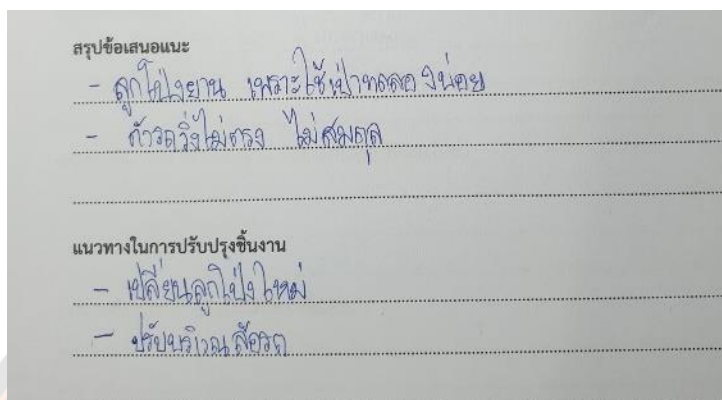 สรุปข้อเสนอแนะ
- ลูกโป่งยาน เพราะใช้เป่าทดลองบ่อย
- ตัวรถวิ่งไม่ตรง ไม่สมดุล
แนวทางในการปรับปรุงชิ้นงาน
- เปลี่ยนลูกโป่งใหม่
- ปรับบริเวณล้อรถ